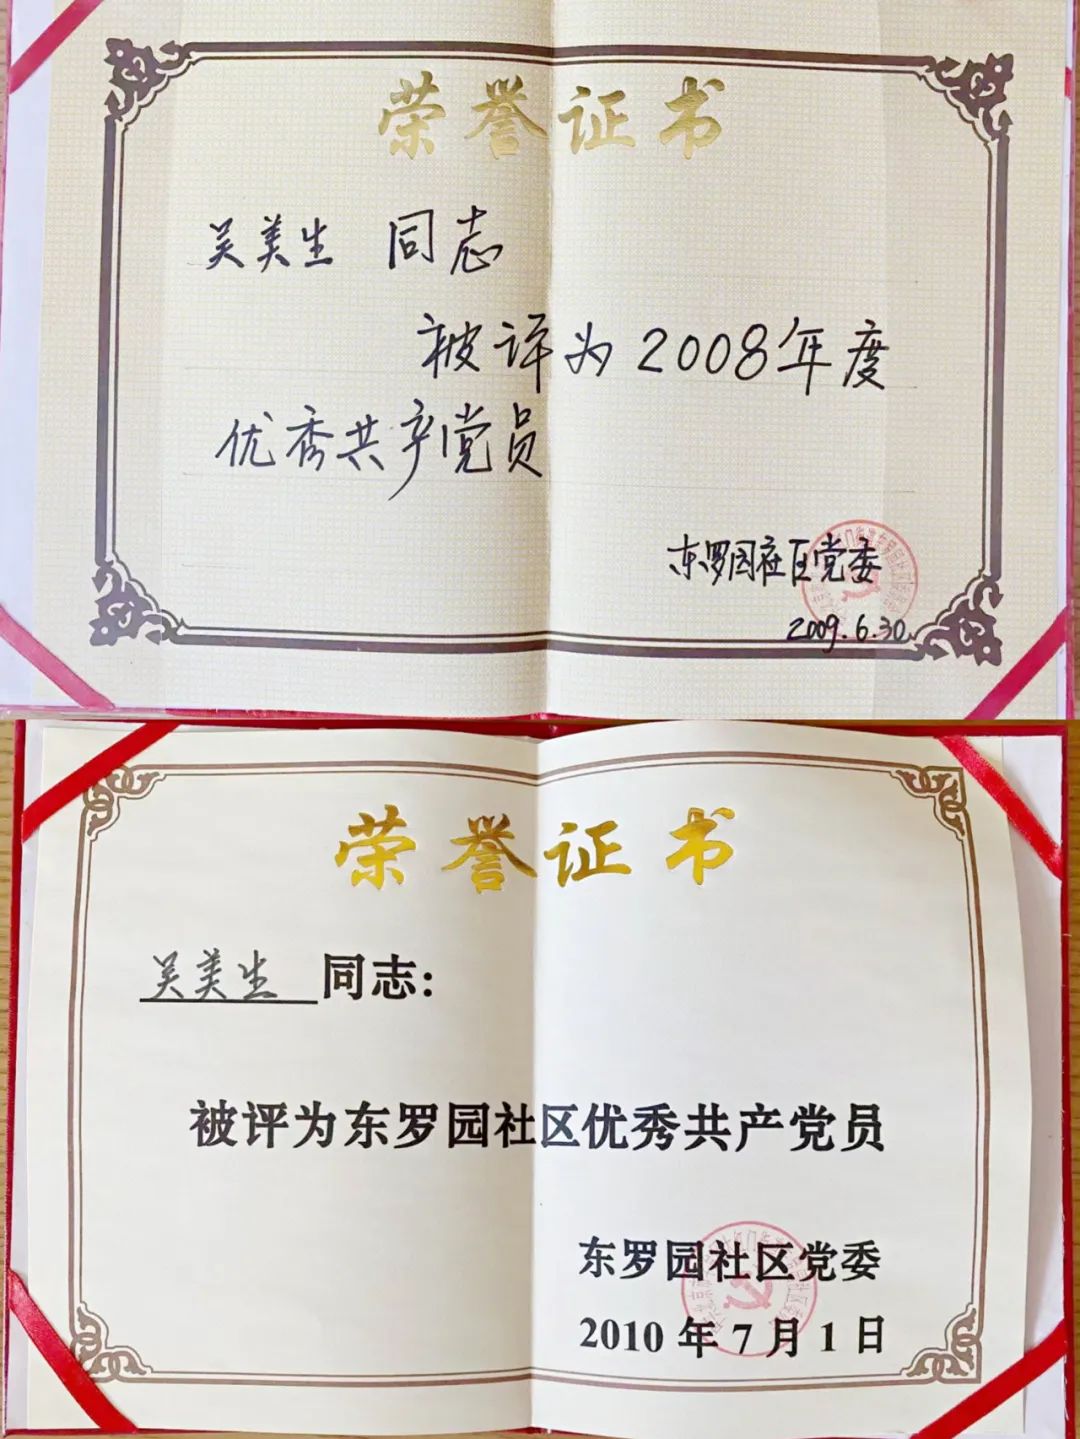 荣誉证书
吴美生 同志
被评为2008年度
优秀共产党员
东罗园社区党委
2009.6.30
荣誉证书
吴美生 同志:
被评为东罗园社区优秀共产党员
东罗园社区党委
2010年7月1日